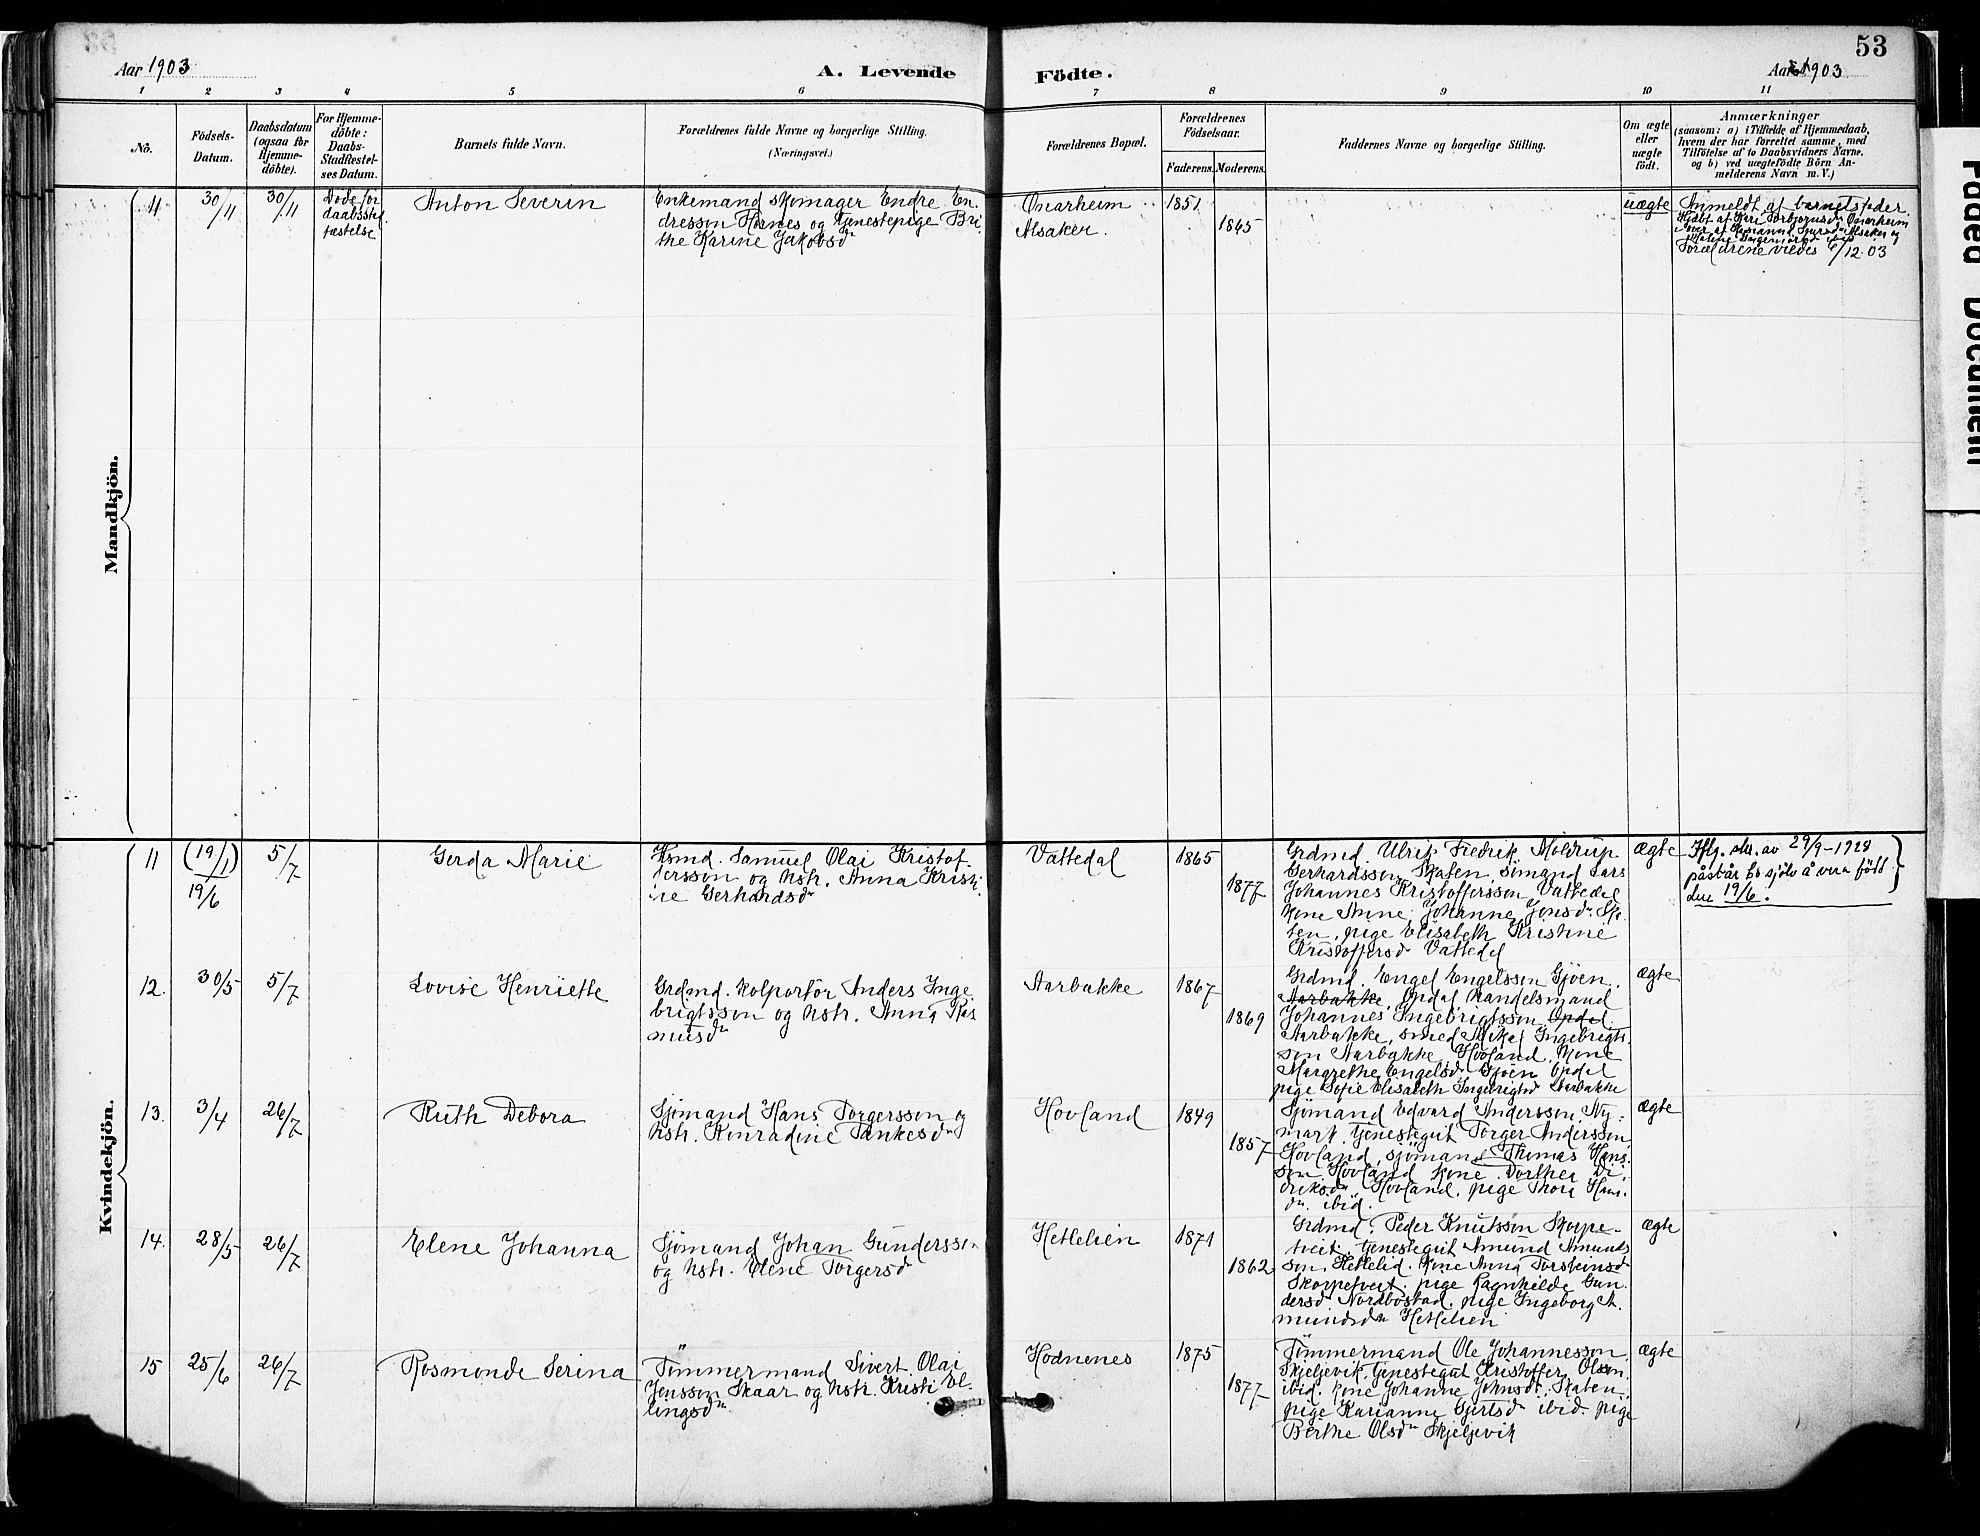 53
Aar 1903
A. Levende Födte.
Aar 1903
1 2 3 4 5 6 7 8 9 10 11
No.
Födsels-
Datum.
Daabsdatum
(ogsaa for
Hjemme-
döbte).
For Hjemme-
döbte:
Daabs-
Stadfæstel-
ses Datum.
Barnets fulde Navn.
Forældrenes fulde Navne og borgerlige Stilling.
(Næringsvei.)
Forældrenes Bopæl.
Forældrenes
Födselsaar.
Faderens. Moderens.
Faddernes Navne og borgerlige Stilling.
Om ægte
eller
uægte
födt.
Anmærkninger
(saasom: a) i Tilfælde af Hjemmedaab,
hvem der har forrettet samme, med
Tilföielse af to Daabsvidners Navne,
og b) ved uægtefödte Börn An-
melderens Navn m. V.)
Mandkjön.
11
30/11
30/11
Døde før
daabsstad
fæstelse
Anton Severin
Enkemand skomager Endre En
dressøn Hornes og tjenestepige Bri
the Karine Jakobsdr
Onarheim
Alsaker.
1851
1865
uægte
Anmeldt af barnets fader
Hjdbt af Kari Torbjørnsdr Onarheim
Forældrene viedes 6/12 03
Kvindekjön.
11
(19/1)
19/6
5/7
Gerda Marie
Hsmd. Samuel Olai Kristof-
fersson og hstr. Anna Kristi
ne Gerhardsdr
Vattedal
1865
1877
Grdmd. Ulrik Fredrik Møldrup
Gerhardsson Skaten, sømand Lars
Johannes Kristoffersson Vattedal
kone Anine Johanne Jonsdr. Ska
ten, pige Elisabeth Kristine
Kristoffersdr Vattedal
ægte
Iflg. skr. av 29/9-1928
påstår ho sjølv å vera född
den 19/6.
12.
30/5
5/7
Lovise Henriette
Grdmd. kolportør Anders Inge
brigtsson og hstr. Anna Ras
musdr
Aarbakke
1867
1869
Grdmd. Engel Engelssøn Gjøen,
Aarbakke, Opdal, handelsmand
Johannes Ingebrigtsson Opdal
Aarbakke, smed Mikal Ingebrigts
son Aarbakke, Hovland, kone
Margrethe Engelsdr Gjøen Opdal
pige Sofie Elisabeth Ingebrigtsdr Aarbakke
ægte
13.
3/4
26/7
Ruth Debora
Sjømand Hans Torgersson og
hstr. Konradine Tankesdr
Hovland
1849
1857
Sjømand Edvard Andersson Ny-
mark, tjenestegut Torger Andersson
Hovland, sjømand Thomas Hans
son Hovland, kone Dorthea Di
driksdr Hovland, pige Thora Hans
dr. ibid.
ægte
14.
28/5
26/7
Elene Johanna
Sjømand Johan Gunderssøn
og hstr. Elene Torgersdr
Hetlelien
1871
1862
Grdmd. Peder Knutsson Skorpe-
tveit, tjenestegut Amund Amunds
son, Hetlelid. kone Anna Torsteinsdr
Skorpetveit. pige Ragnhilde Gun
dersdr Nordbøstad. pige Ingeborg A
mundsdr Hetlelien
ægte
15
25/6
26/7
Rosmonde Serina
Tømmermand Sivert Olai
Jensson Skaar og hstr. Kristi El-
lingsdr
Hodnenes
1875
1877
Tømmermand Ole Johannesson
Skjeljevik, tjenestegut Kristoffer Olson,
ibid. kone Johanne Johnsdr. Skaten,
pige Karianne Gjertsdr ibid. pige
Berthe Olsdr Skjeljevik
ægte